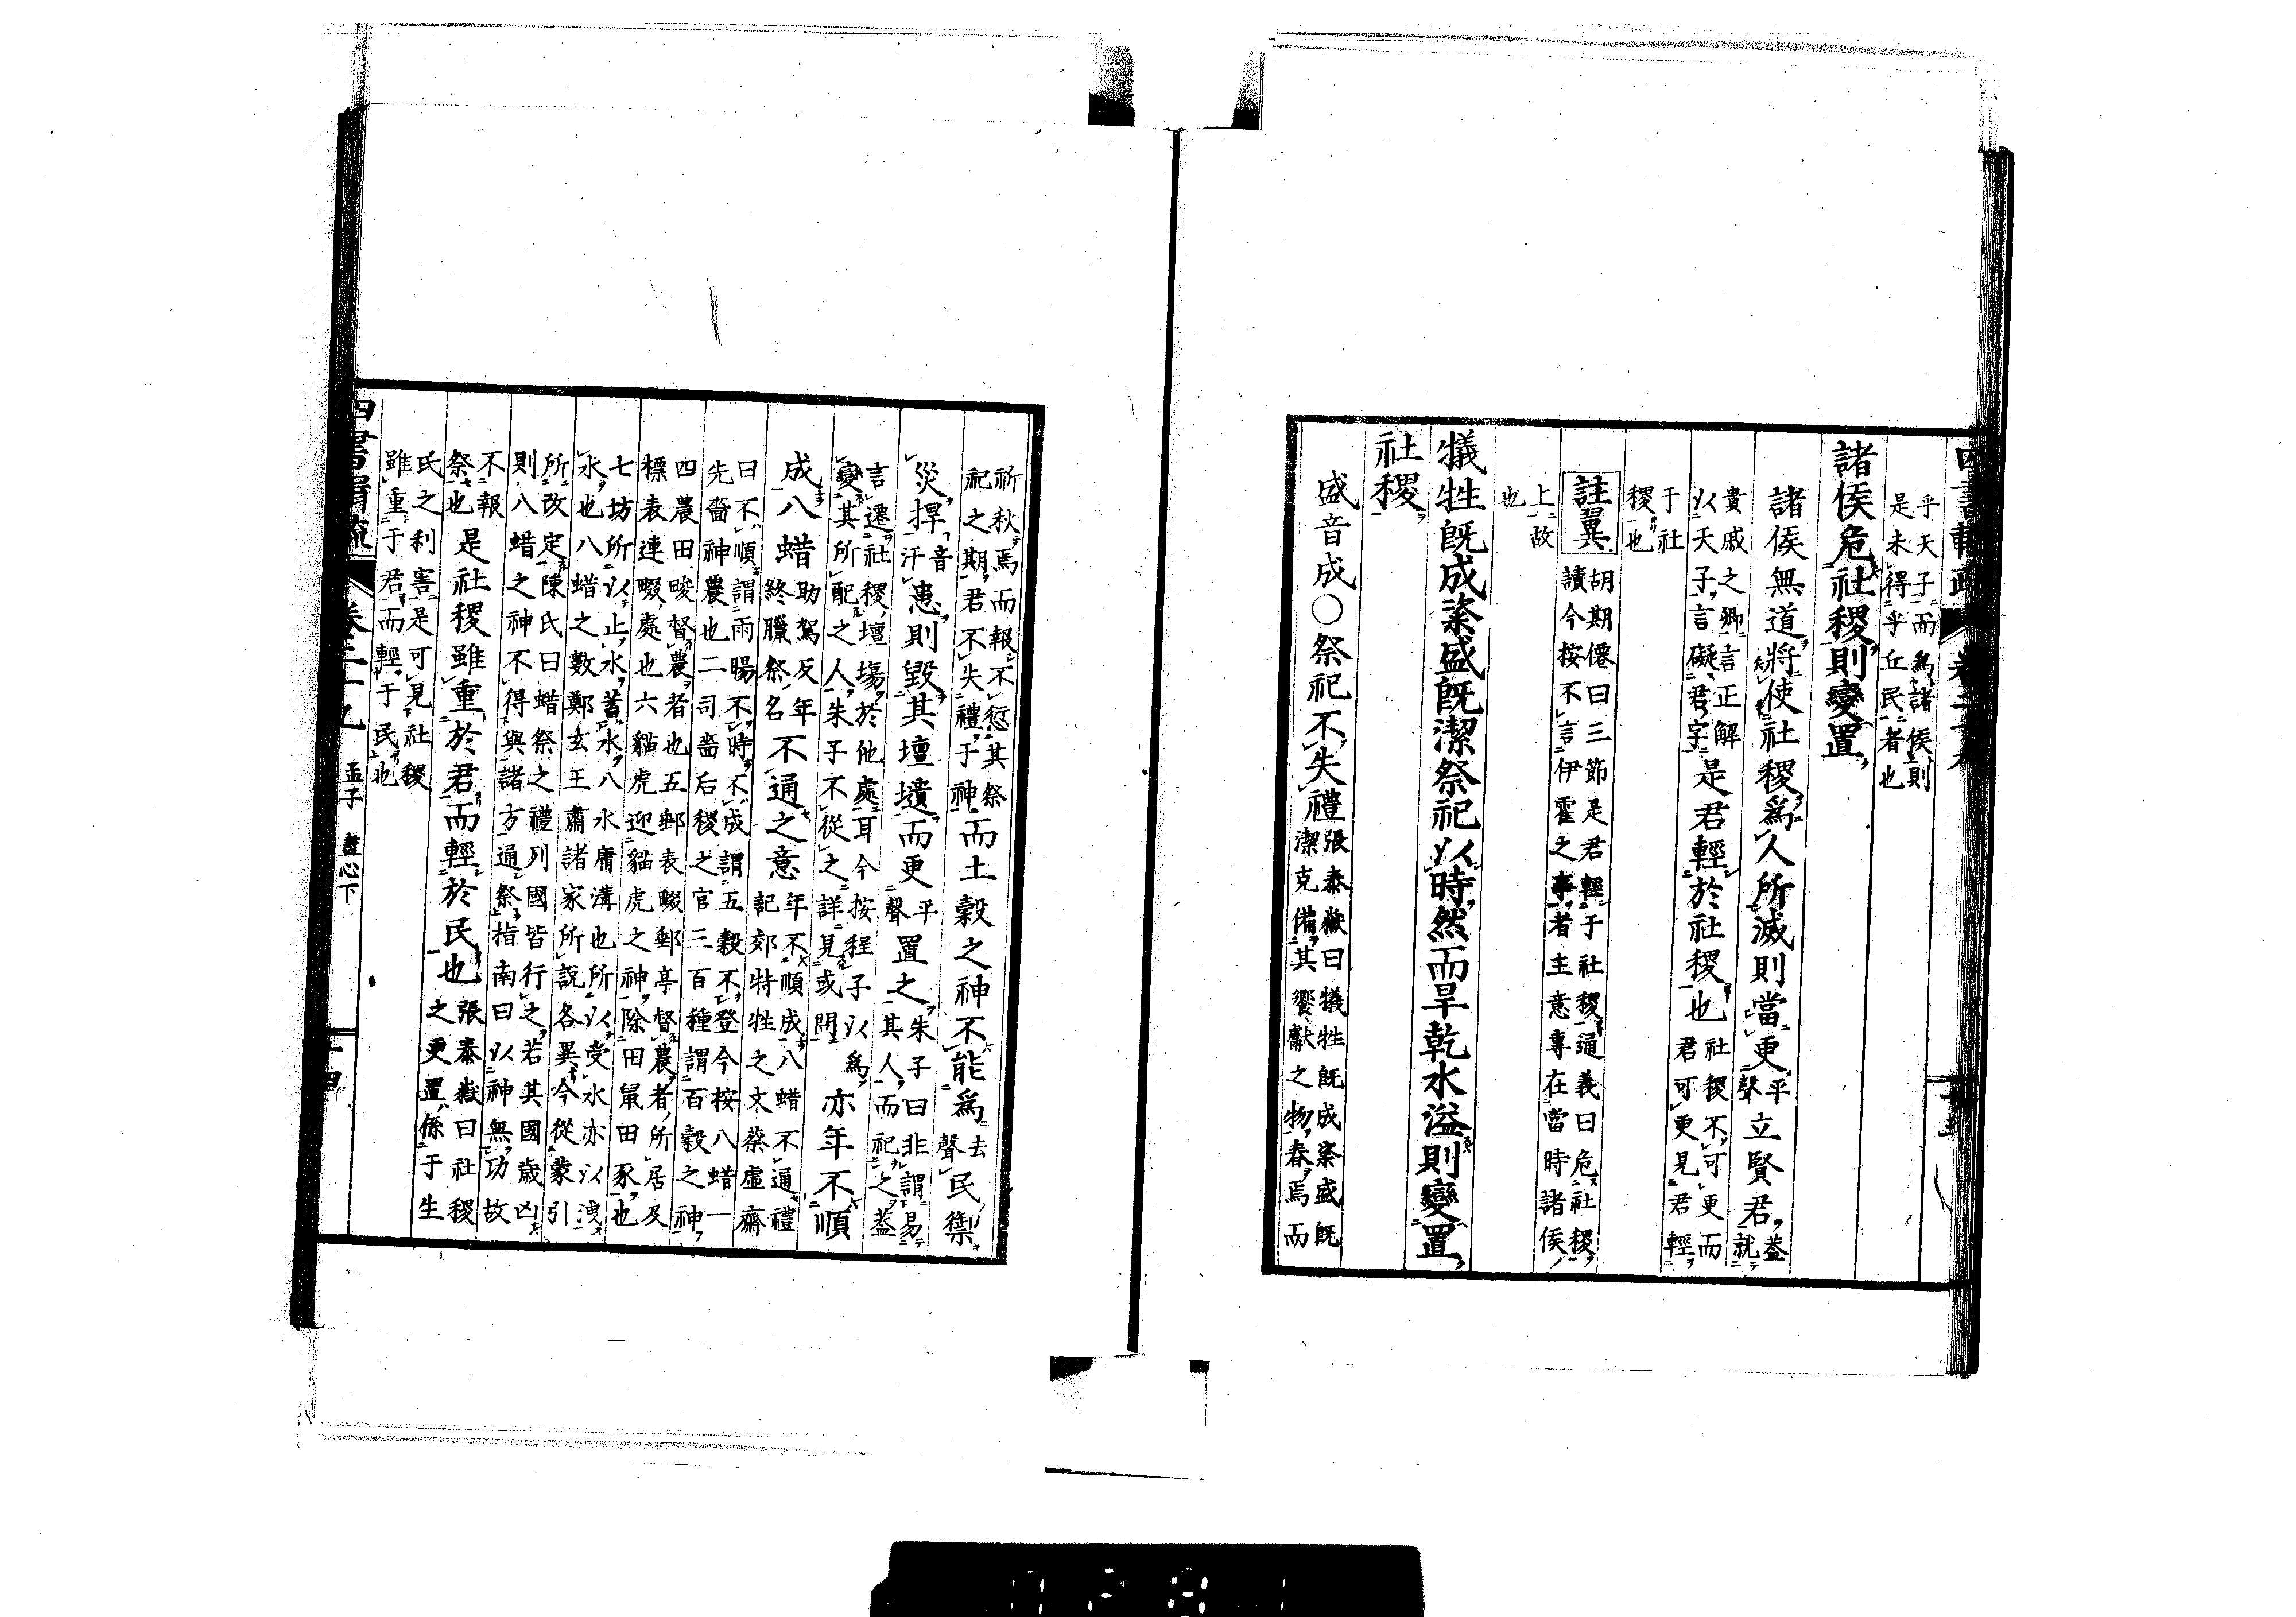 乎天子而為諸侯則
是未得乎丘民者也
諸侯危社稷則變置
諸侯無道將使社稷為人所滅則當更平聲立賢君蓋就
貴戚之卿言正解
以天子言礙君字
是君輕於社稷也
社稷不可更而
君可更見君輕
于社
稷也
註翼
胡期僊曰三節是君輕于社稷通義曰危社稷
讀今按不言伊霍之事者主意專在當時諸侯
上故
也
犧牲既成粢盛既潔祭祀以時然而旱乾水溢則變置
社稷
盛音成○祭祀不失禮
張泰嶽曰犧牲既成粢盛既
潔克備其饗獻之物春焉而
祈秋焉而報不愆其祭
祀之期君不失禮于神
而土穀之神不能為去聲民禦
災捍音汗患則毀其壇壝而更平聲置之
朱子曰非謂易
其人而祀之蓋
言遷社稷壇場於他處耳今按程子以為
變其所配之人朱子不從之詳見或問
亦年不順
成八蜡
助駕反年
終臘祭名
不通之意
年不順成八蜡不通禮
記郊特牲之文蔡虛齋
曰不順謂雨暘不時不成謂五穀不登今按八蜡一
先嗇神農也二司嗇后稷之官三百種謂百穀之神
四農田畯督農者也五郵表畷郵亭督農者所居及
標表連畷處也六貓虎迎貓虎之神除田鼠田豕也
七坊所以止水蓄水八水庸溝也所以受水亦以洩
水也八蜡之數鄭玄王肅諸家所說各異今從蒙引
所改定陳氏曰蜡祭之禮列國皆行之若其國歲凶
則八蜡之神不得與諸方通祭指南曰以神無功故
不報
祭也
是社稷雖重於君而輕於民也
張泰嶽曰社稷
之更置係于生
民之利害是可見社稷
雖重于君而輕于民也
四書輯疏 卷二十九 孟子 盡心下 十四